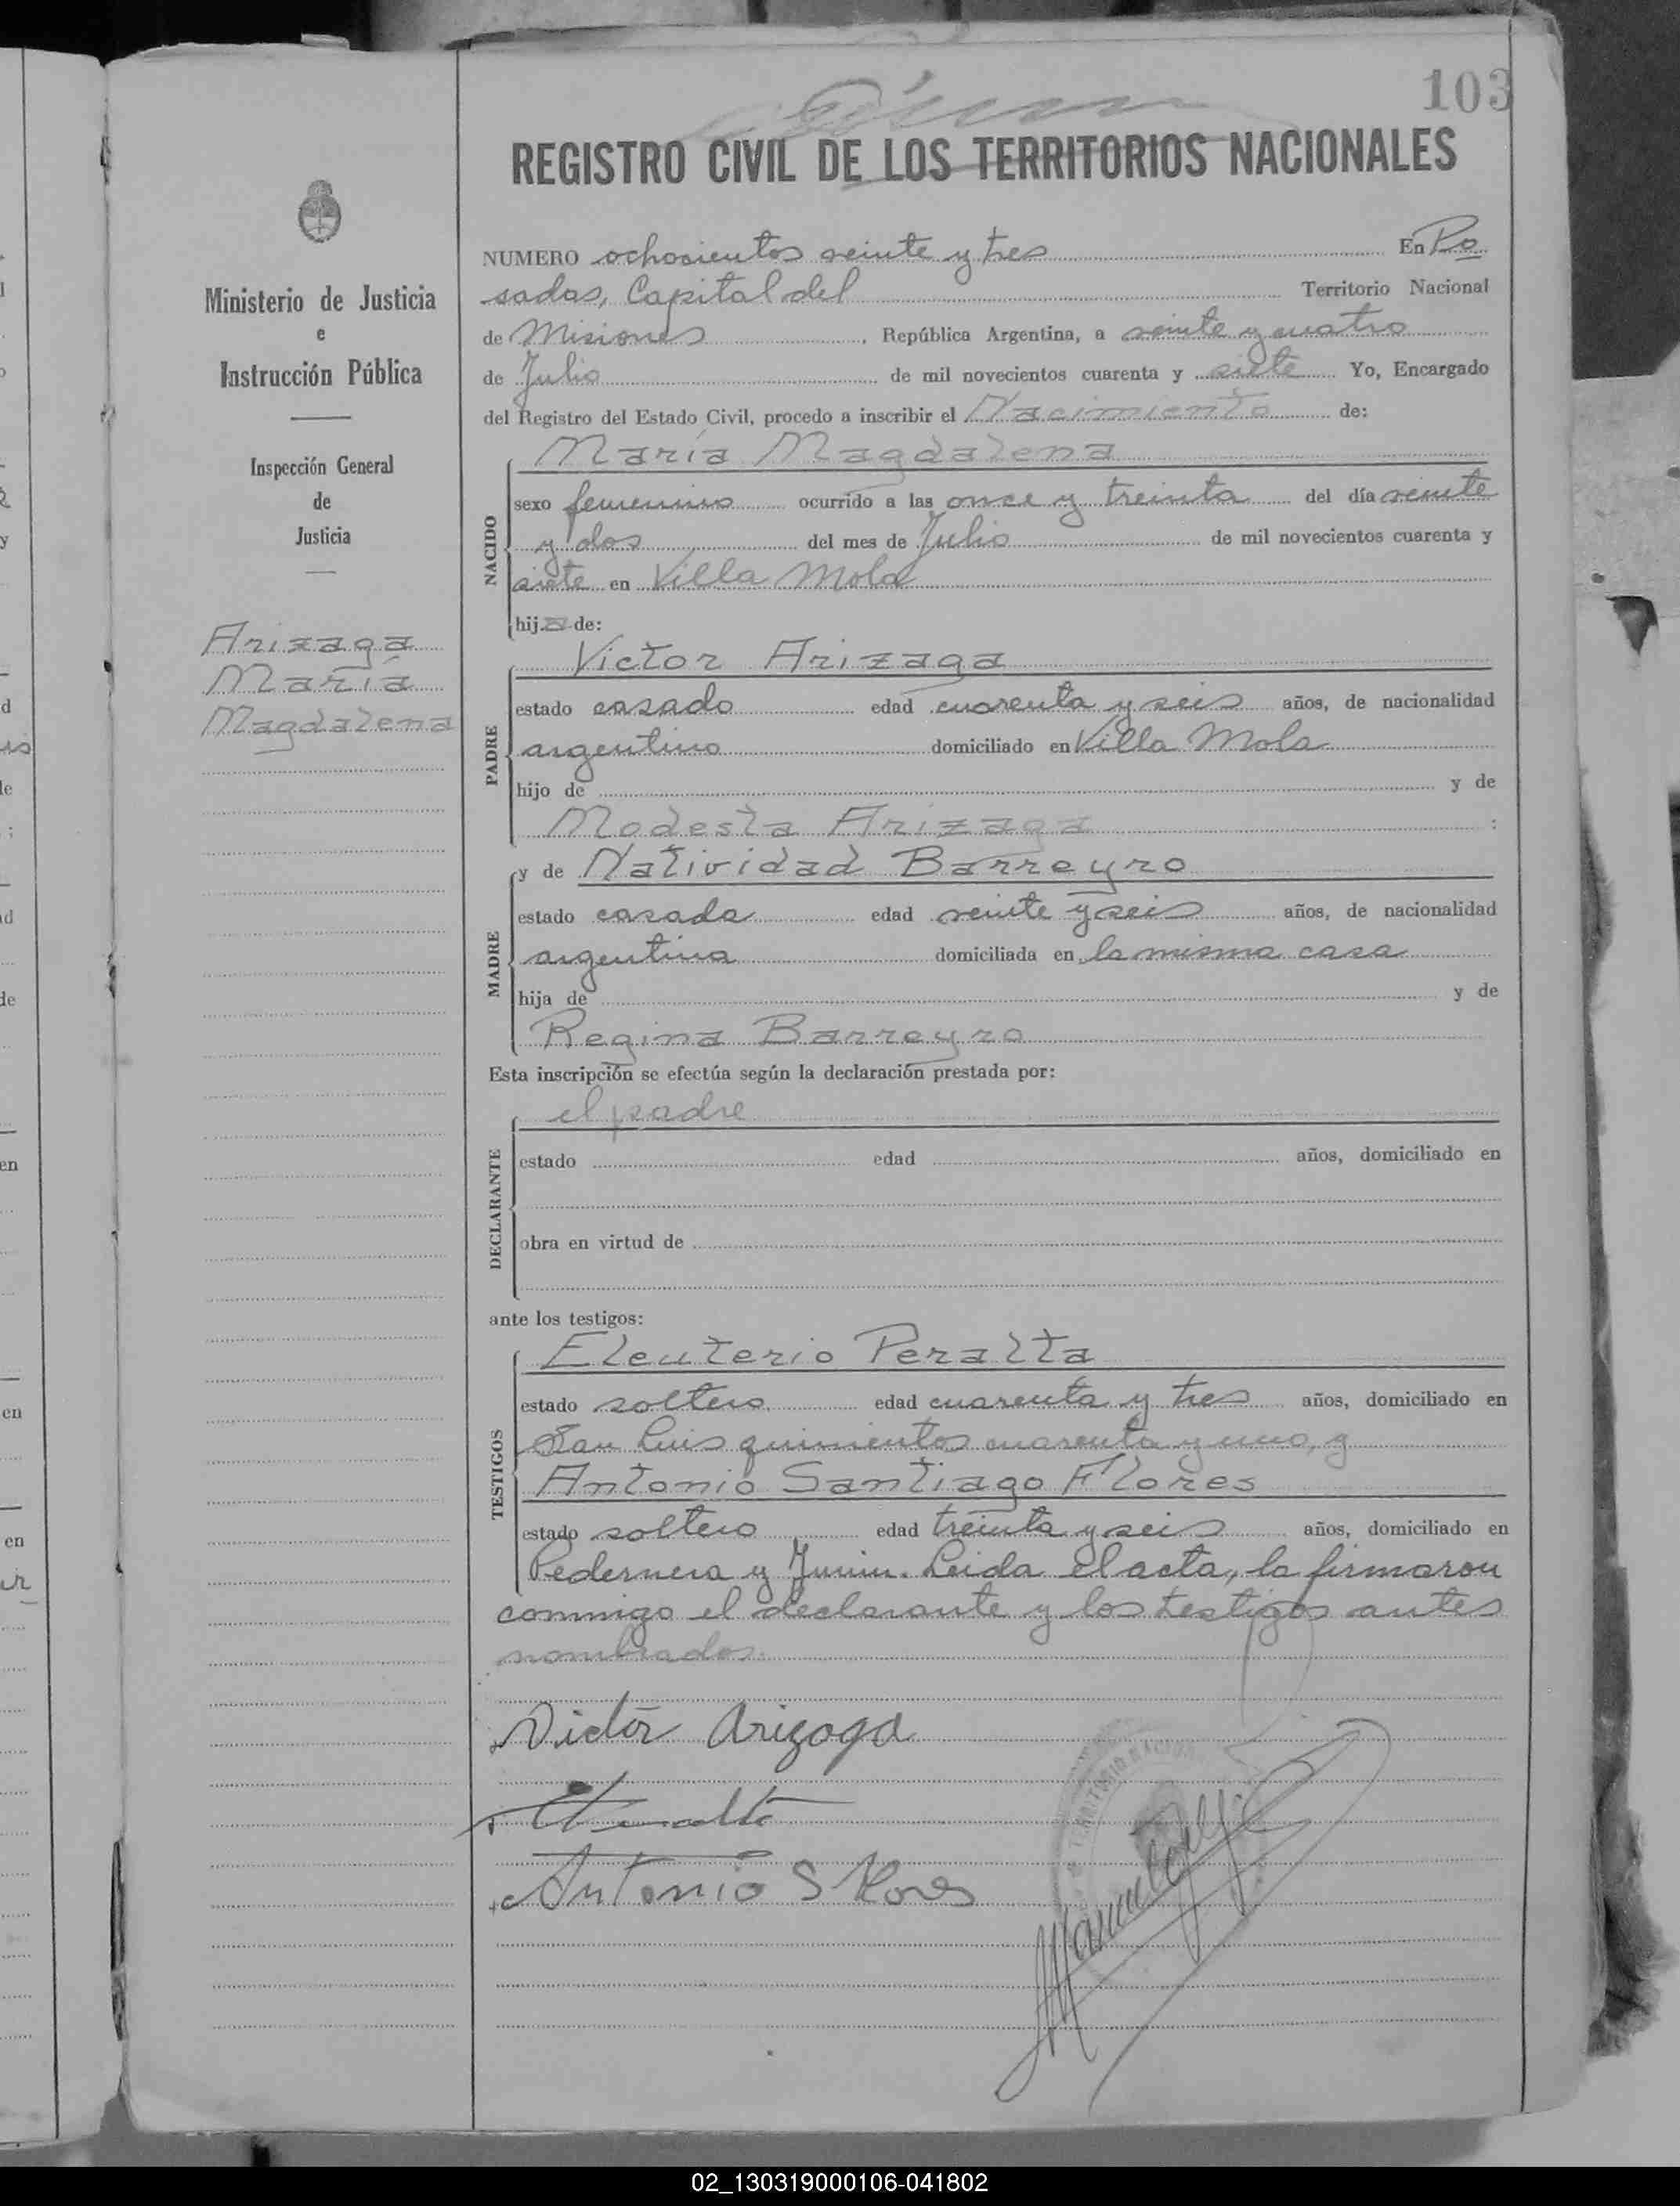 103
REGISTRO CIVIL DE LOS TERRITORIOS NACIONALES
Ministerio de Justicia
e
Instrucción Pública
Inspección General
de
Justicia
Arizaga
María
Magdalena
NUMERO ochosientos veinte y tres En Po
sadas, Capital del Territorio Nacional
de Misiones, República Argentina, a veinte y cuatro
de Julio de mil novecientos cuarenta y siete Yo, Encargado
del Registro del Estado Civil, procedo a inscribir el Nacimiento de:
María Magdalena
NACIDO
sexo femenino ocurrido a las once y treinta del día veinte
y dos del mes de Julio de mil novecientos cuarenta y
siete en Villa Mola
hija de:
Victor Arizaga
PADRE
estado casado edad cuarenta y seis años, de nacionalidad
argentino domiciliado en Villa Mola
hijo de y de
Modesta Arizaga :
y de Natividad Barreyro
MADRE
estado casada edad veinte y seis años, de nacionalidad
argentina domiciliada en la misma casa
hija de y de
Regina Barreyro
Esta inscripción se efectúa según la declaración prestada por:
el padre
DECLARANTE
estado edad años, domiciliado en
obra en virtud de
ante los testigos:
Eleuterio Peralta
TESTIGOS
estado soltero edad cuarenta y tres años, domiciliado en
San Luis quinientos cuarenta y uno, y
Antonio Santiago Flores
estado soltero edad treinta y seis años, domiciliado en
Pedernera y Junin. Leida el acta, la firmaron
conmigo el declarante y los testigos antes
nombrados.
Victor Arizaga
EPeralta
Antonio S Flores
02_130319000106-041802